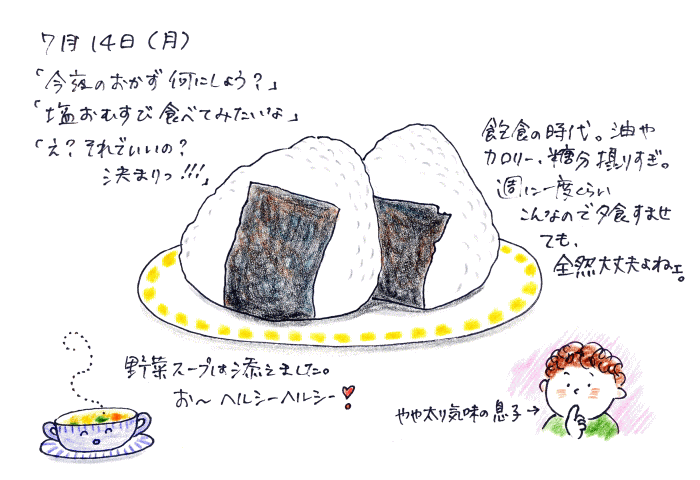 7月14日(月)
「今夜のおかず何にしよう?」
「塩おむすび食べてみたいな」
「え?それでいいの?
決まりっ!!!」
飽食の時代。油や
カロリー、糖分摂りすぎ。
週に一度くらい
こんなので夕食すませ
ても、
全然大丈夫よねェ。
野菜スープは添えました。
お〜ヘルシーヘルシー♥
やや太り気味の息子→